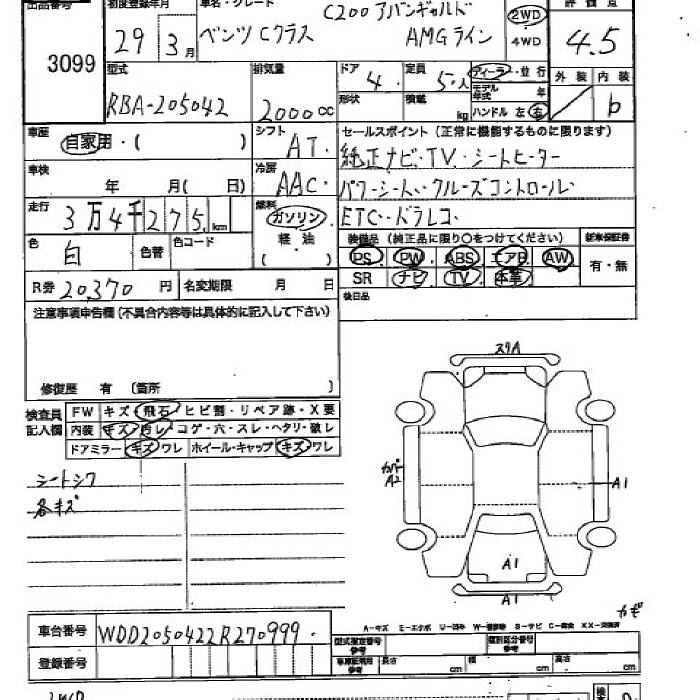 出品番号 初度登録年月 車名・グレード 評価点
C200 アバンギャルド
3099 29年 3月 ベンツ Cクラス AMGライン 2WD 4WD 4.5
型式 排気量 ドア 4 定員 5人 ディーラー・並行 外装 内装
RBA-205042 2000cc 形状 積載 kg モデル年式 年 ハンドル 左 右 b
車歴 自家用・( ) シフト AT セールスポイント(正常に機能するものに限ります)
純正ナビ・TV・シートヒーター
車検 年 月( 日) 冷房 AAC パワーシート・クルーズコントロール
走行 3万4千275km 燃料 ガソリン 軽油 ( ) ETC・ドラレコ
色 白 色替 色コード 装備品(純正品に限り○をつけてください) 新車保証書
PS PW ABS エアB AW 有・無
R券 20,370円 名変期限 月 日 SR ナビ TV 本革
後日品
注意事項申告欄(不具合内容等は具体的に記入して下さい)
修復歴 有 (箇所 )
検査員記入欄 FW キズ・飛石・ヒビ割・リペア跡・X要
内装 キズ・汚レ・コゲ・穴・スレ・ヘタリ・破レ
ドアミラー キズ ワレ ホイール・キャップ キズ ワレ
シートシワ
各キズ
スリA
カバー
A2
A1
A1
A1
A-キズ E-エクボ U-凹み W-補修跡 S-サビ C-腐食 XX-交換済
車台番号 WDD2050422R270999
型式指定番号 参考 類別区分番号 参考
登録番号 車庫証明用 参考 長さ cm 幅 cm 高さ cm